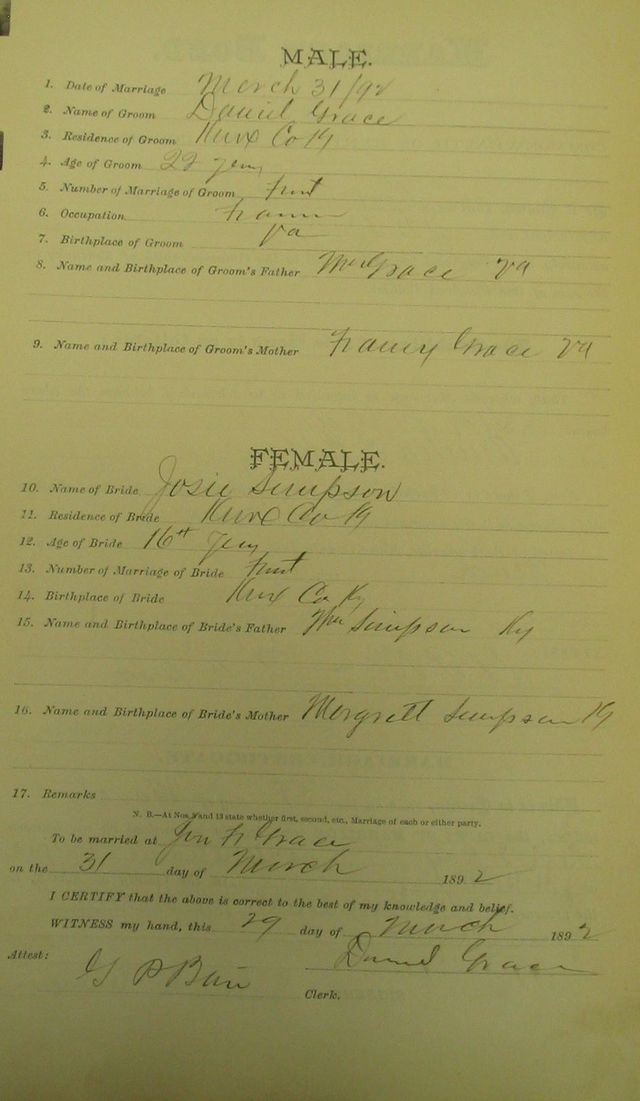 MALE.
1. Date of Marriage March 31/92
2. Name of Groom Daniel Grace
3. Residence of Groom Knox Co Ky
4. Age of Groom 22 years
5. Number of Marriage of Groom First
6. Occupation Farmer
7. Birthplace of Groom Va
8. Name and Birthplace of Groom's Father Grace Va
9. Name and Birthplace of Groom's Mother Grace Va
FEMALE.
10. Name of Bride Josie Simpson
11. Residence of Bride Knox Co Ky
12. Age of Bride 16th years
13. Number of Marriage of Bride First
14. Birthplace of Bride Knox Co Ky
15. Name and Birthplace of Bride's Father Simpson Ky
16. Name and Birthplace of Bride's Mother Margrett Simpson Ky
17. Remarks
N. B.—At Nos. 5 and 13 state whether first, second, etc., Marriage of each or either party.
To be married at Grace
on the 31 day of March 1892
I CERTIFY that the above is correct to the best of my knowledge and belief.
WITNESS my hand, this 29 day of March 1892
Daniel Grace
Attest:
G P Bain
Clerk.